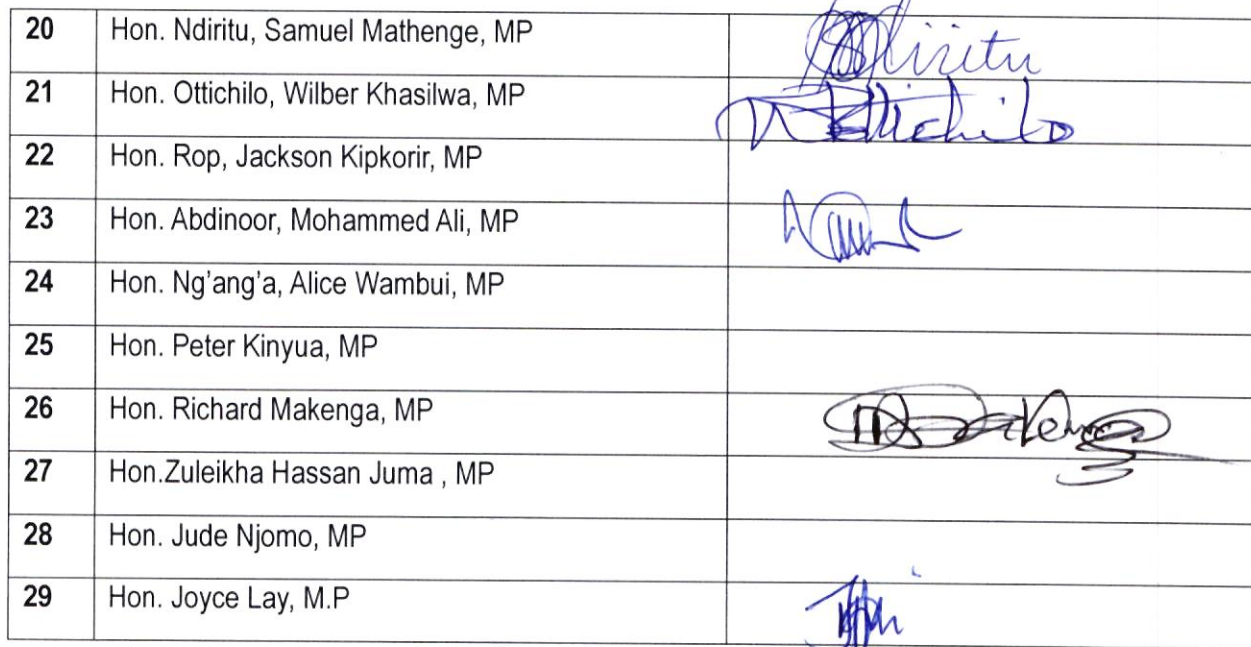 20 Hon. Ndiritu, Samuel Mathenge, MP
21 Hon. Ottichilo, Wilber Khasilwa, MP
22 Hon. Rop, Jackson Kipkorir, MP
23 Hon. Abdinoor, Mohammed Ali, MP
24 Hon. Ng'ang'a, Alice Wambui, MP
25 Hon. Peter Kinyua, MP
26 Hon. Richard Makenga, MP
27 Hon.Zuleikha Hassan Juma , MP
28 Hon. Jude Njomo, MP
29 Hon. Joyce Lay, M.P